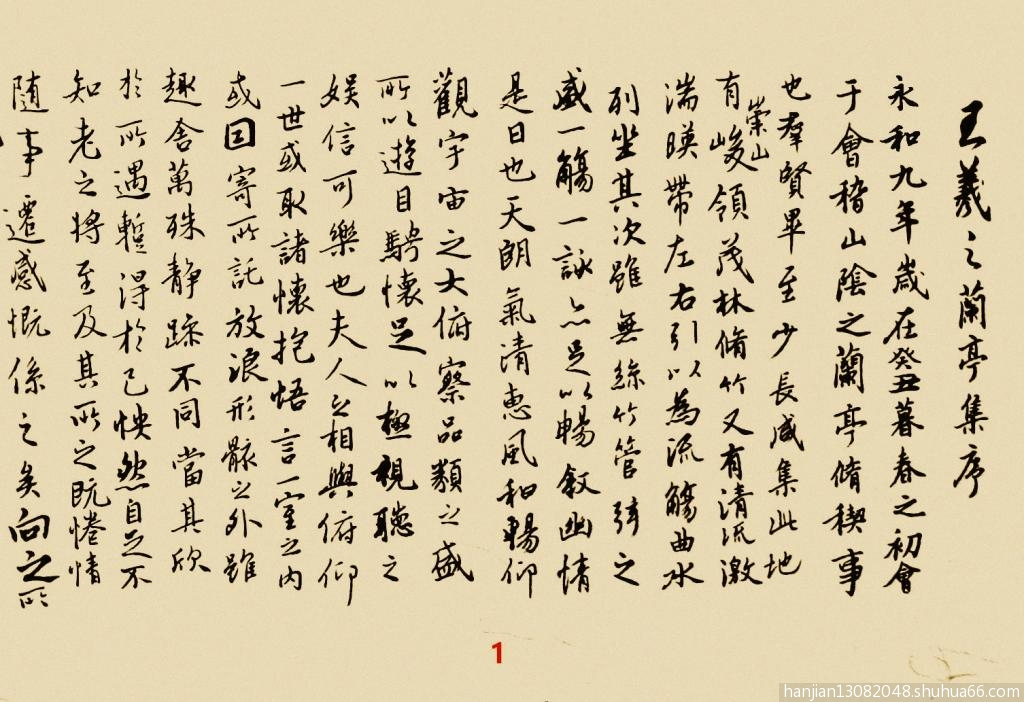 王羲之蘭亭集序
永和九年歲在癸丑暮春之初會
于會稽山陰之蘭亭脩稧事
也羣賢畢至少長咸集此地
有崇山峻領茂林脩竹又有清流激
湍暎帶左右引以為流觴曲水
列坐其次雖無絲竹管弦之
盛一觴一詠亦足以暢敘幽情
是日也天朗氣清惠風和暢仰
觀宇宙之大俯察品類之盛
所以遊目騁懷足以極視聽之
娱信可樂也夫人之相與俯仰
一世或取諸懷抱悟言一室之内
或因寄所託放浪形骸之外雖
趣舍萬殊靜躁不同當其欣
於所遇暫得於己怏然自足不
知老之將至及其所之既惓情
随事遷感慨係之矣向之所
1
hanjian13082048.shuhua66.com